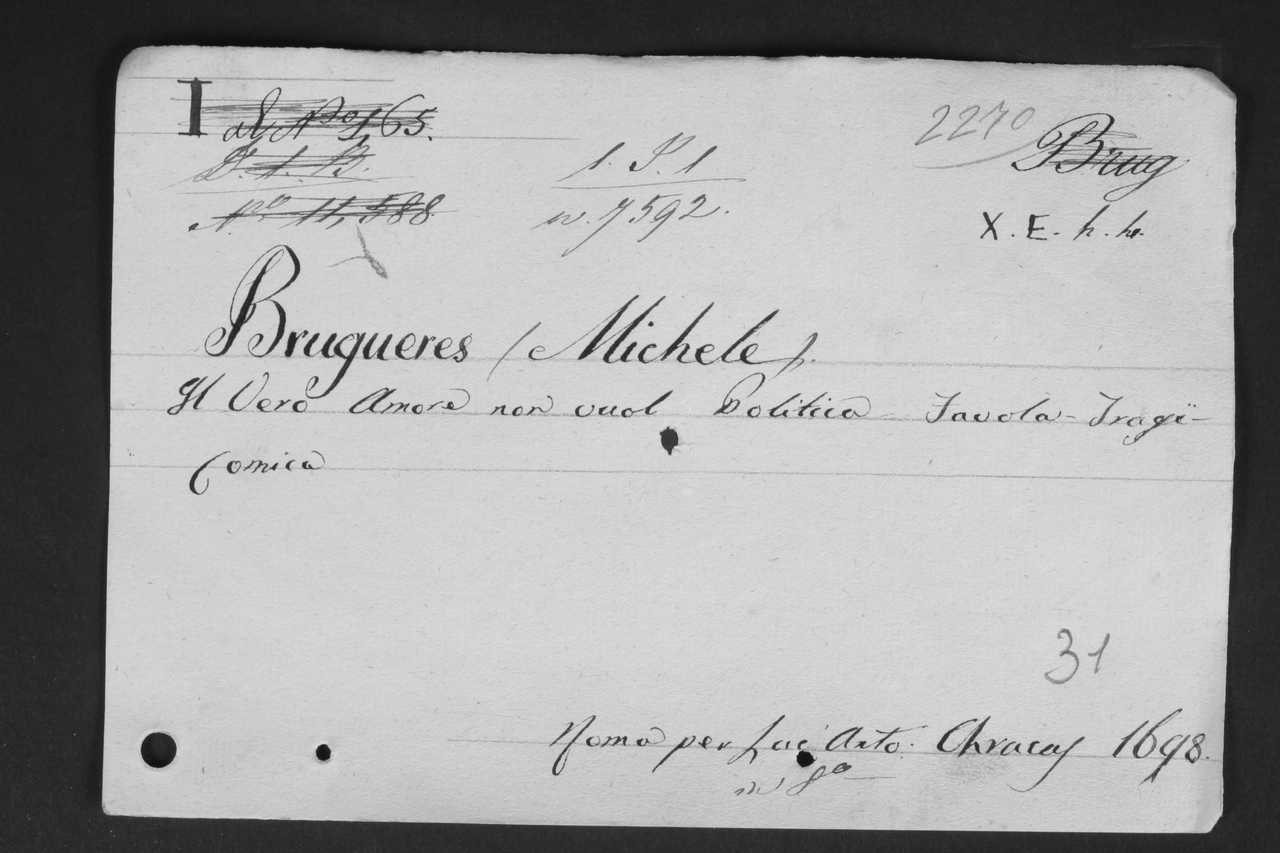 I
N.º 1,65. 2270
Brug
1. P. 1
N.º 11,588 n. 7592.
X. E. h. h.
Brugueres (Michele).
Il Vero Amore non vuol Politica Favola-Tragi-
Comica
31
Roma per Luc' Anto. Chracas 1698.
in 8º